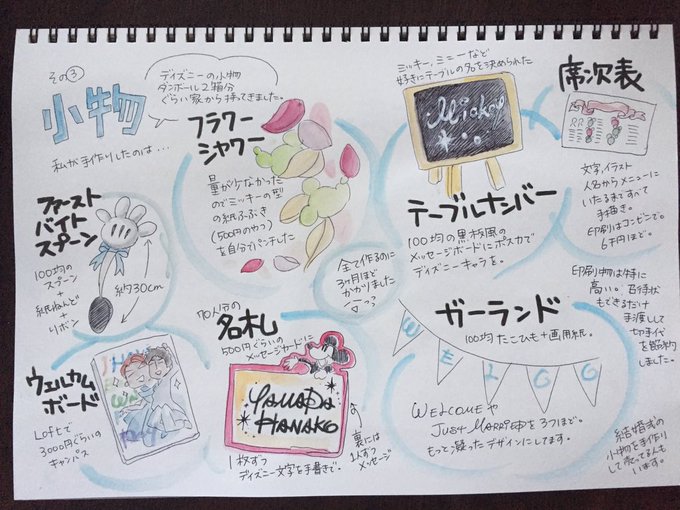 その③
小物
ディズニーの小物
ダンボール2箱分
ぐらい家から持ってきました。
私が手作りしたのは…
フラワー
シャワー
量が少なかった
のでミッキーの型
の紙ふぶき
(500円のやつ)
を自分でパンチした
ミッキー、ミニーなど
好きにテーブルの名を決められた
Mickey
テーブルナンバー
100均の黒板風の
メッセージボードにポスカで
ディズニーキャラを。
席次表
文字、イラスト
人名からメニューに
いたるまですべて
手描き。
印刷はコンビニで。
6千円ほど。
印刷物は特に
高い。招待状
もできるだけ
手渡しして
切手代
を節約
しました。
ファースト
バイト
スプーン
100均の
スプーン
+
紙ねんど
+
リボン
約30cm
全て作るのに
3ヶ月ほど
かかりました
ウェルカム
ボード
Loftで
3000円ぐらいの
キャンバス
70人分の
名札
500円ぐらいの
メッセージカードに
YAMADA
HANAKO
1枚ずつ
ディズニー文字を手書きで。
裏には
1人ずつ
メッセージ
ガーランド
100均たこひも+画用紙。
WELCOMEや
JUST MARRIEDを3つほど。
もっと凝ったデザインにしてます。
結婚式の
小物を手作り
して売ってる人も
います。